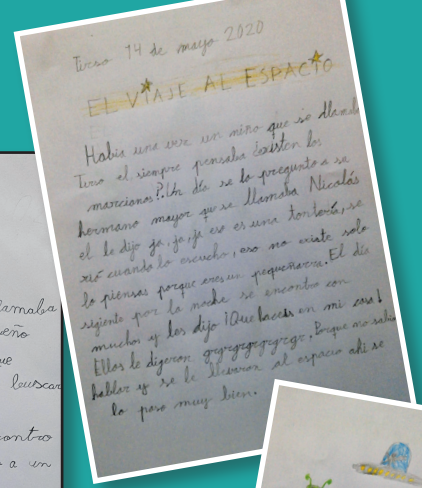 Tirso 14 de mayo 2020
EL VIAJE AL ESPACIO
Había una vez un niño que se llamaba
Tirso el siempre pensaba ¿existen los
marcianos?. Un día se lo pregunto a se
hermano mayor que se llamaba Nicolás
el le dijo ja, ja, ja eso es una tontería, se
rió cuando lo escucho, eso no existe solo
lo piensas porque eres un pequeñarro. El día
sigiente por la noche se encontro con
muchos y les dijo ¡Que haceis en mi casa!
Ellos le digeron grgrgrgrgrgrgr. Porque no sabia
hablar y se le llevaron al espacio ahi se
lo paso muy bien.
lamaba
eño
ue
leuscar
ontro
a un